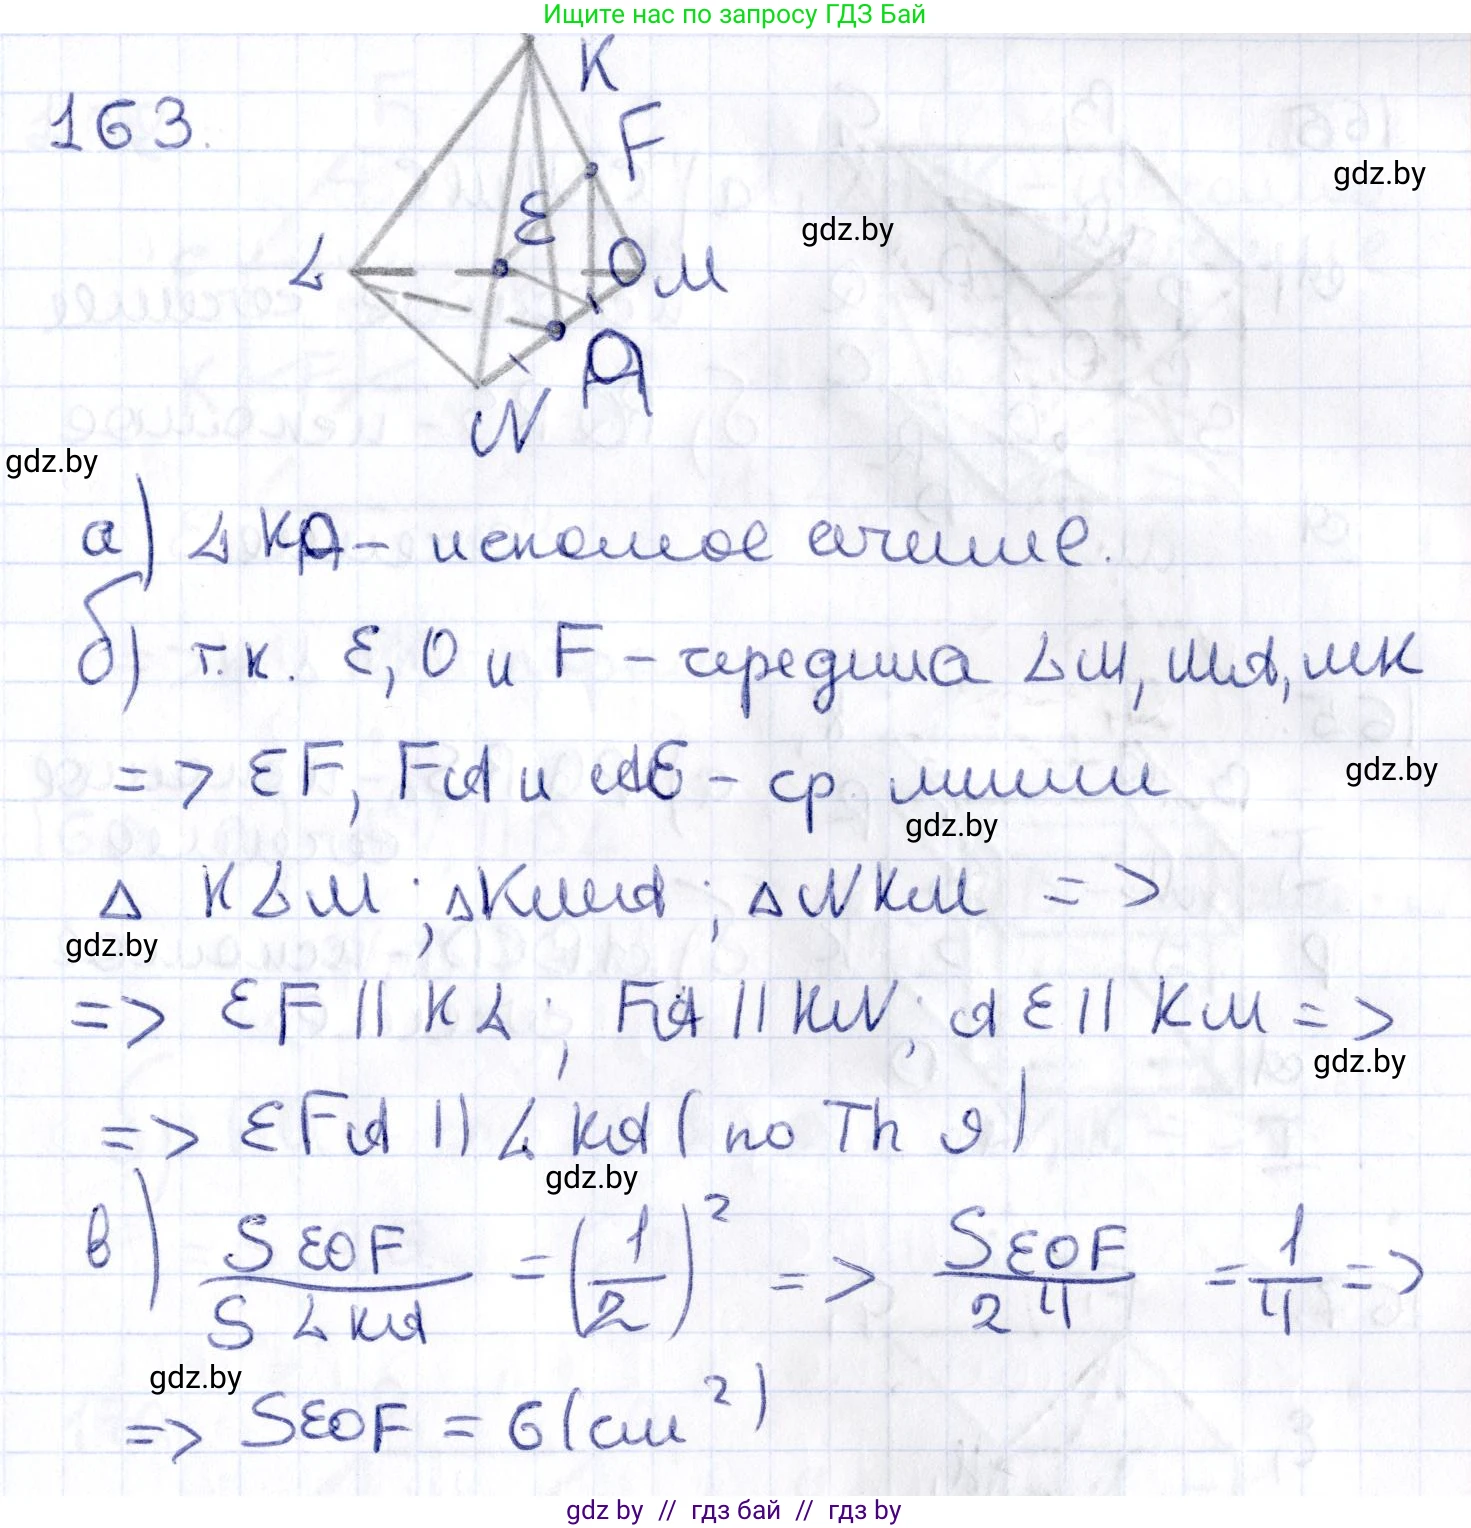 Ищите нас по запросу ГДЗ Бай
163.
K
F
gdz.by
gdz.by
E
L
O M
A
N
gdz.by
а) LKA – искомое сечение.
б) т.к. E, O и F – середина LM, MA, MK
=> EF, FA и AE – ср. линии
gdz.by
gdz.by
Δ KLM; ΔKMA; ΔNKM =>
gdz.by
=> EF || KL; FA || KN; AE || KM =>
gdz.by
=> EFA || LKA (по Th 9)
gdz.by
в) S EOF / S LKA = (1/2)² => SEOF / 24 = 1/4 =>
gdz.by
=> SEOF = 6 (см²)
gdz by // гдз бай // гдз by